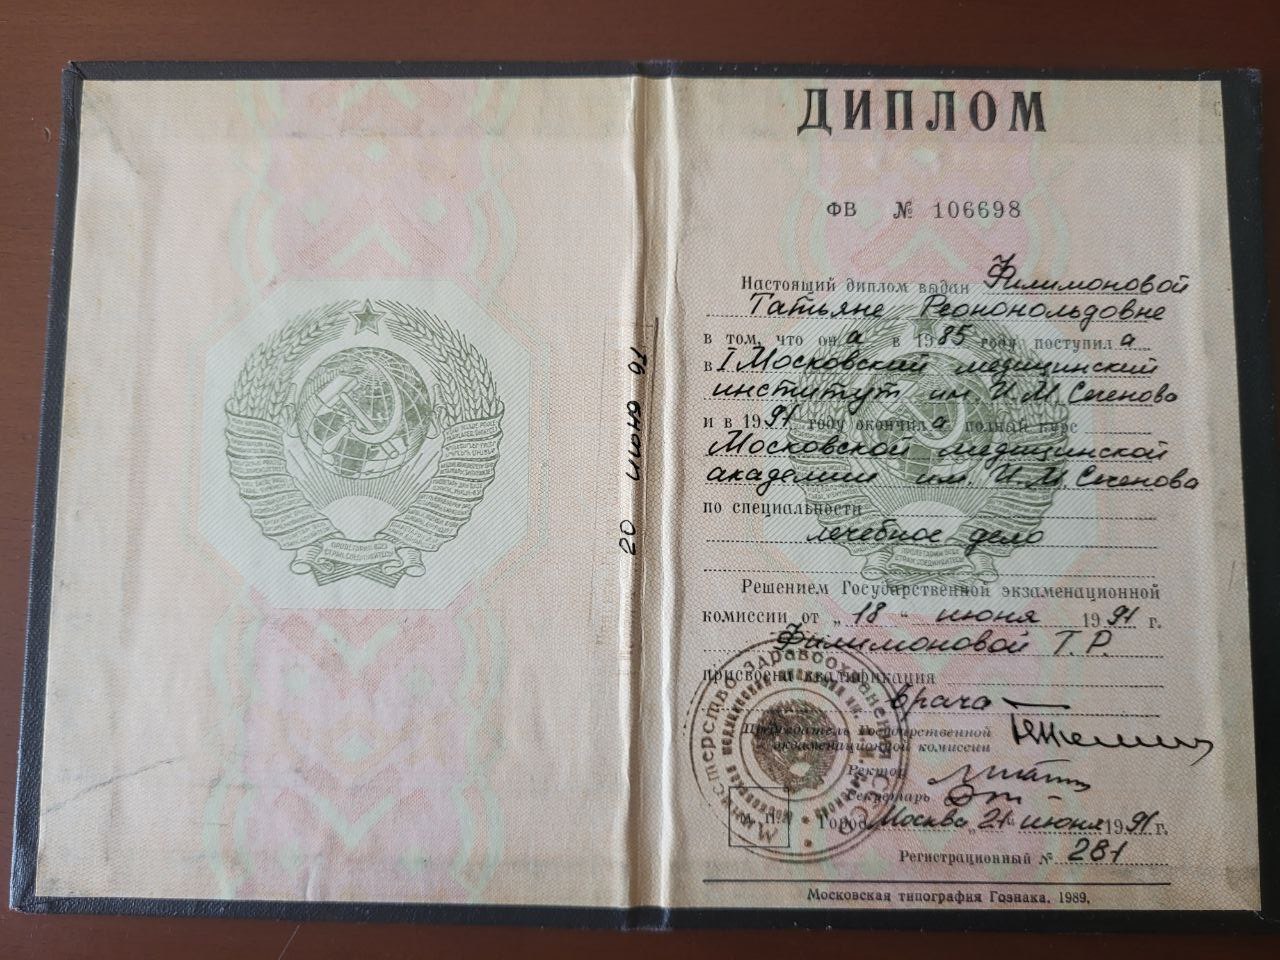 ДИПЛОМ
ФВ № 106698
Настоящий диплом выдан Филимоновой
Татьяне Реонольдовне
в том, что он а в 1985 году поступил а
в I Московский медицинский
институт им. И.М. Сеченова
и в 1991 году окончил а полный курс
Московской медицинской
академии им. И.М. Сеченова
по специальности
лечебное дело
Решением Государственной экзаменационной
комиссии от „18“ июня 1991 г.
Филимоновой Т. Р.
присвоена квалификация
врача
Председатель Государственной
экзаменационной комиссии
Ректор
Секретарь
М. П.
Город Москва „21“ июня 1991 г.
Регистрационный № 281
Московская типография Гознака. 1989.
Министерство здравоохранения СССР
ПРОЛЕТАРИИ ВСЕХ
СТРАН, СОЕДИНЯЙТЕСЬ!
20 июня 91